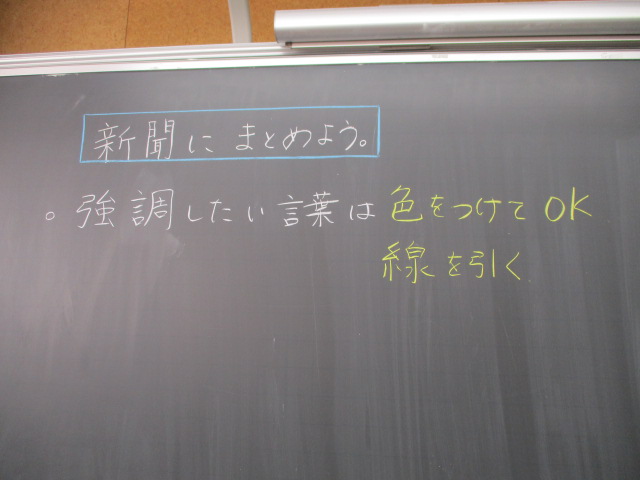 新聞にまとめよう。
。強調したい言葉は 色をつけてOK
線を引く